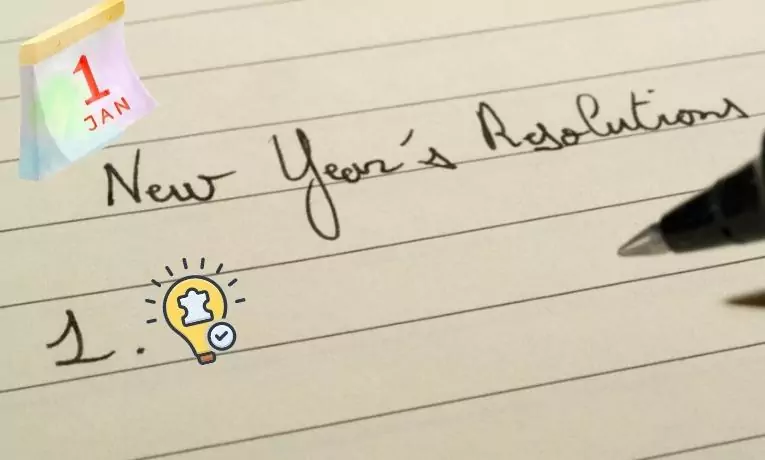 1
JAN
New Year's Resolutions
1.